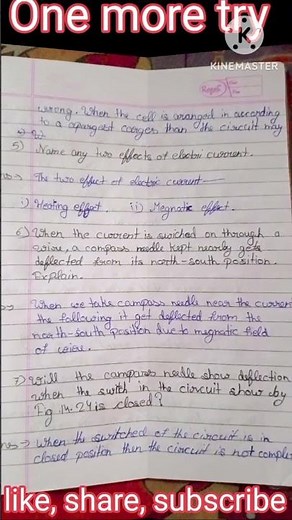 One more try
KINEMASTER
wrong. When the cell is aranged in according
to a
than the circuit may
5) Name any two effects of electric current.
The two effect of electric current
i) Heating effect. ii) Megnatic effect.
6) When the current is swiched on through a
wire, a compass needle kept nearby gets
deflected from its north-south position.
Explain.
When we take campass needle near the current
the following it get deflected from the
north-south position due to magnatic field
of wire.
7) Will the campares needle show deflection
when the swith in the circuit show by
Fig 14.24 is closed?
When the switched of the circuit is in
closed positon then the circuit is not comple
like, share, subscribe